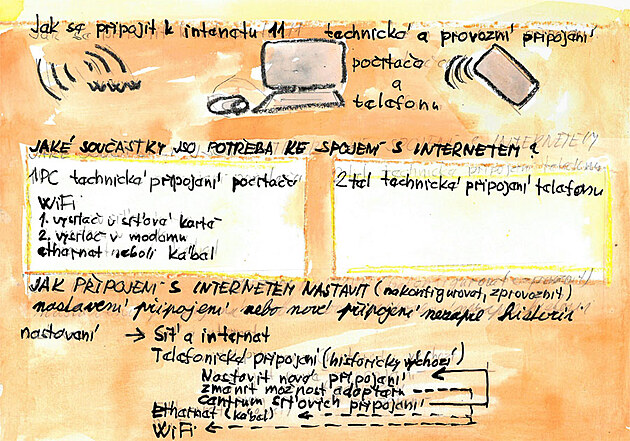 Jak sa připojit k intenatu 11 technická a provozní připojaní
počítača
a
telafonu
www
JAKÉ SOUČÁSTKY JSO POTŘEBA KE SPOJENÍ S INTERNETEM?
1 PC tachnická připojaní počítačů
WiFi
1. vysílač u síťová karta
2. vysílač v modamu
atharnat naboli kábal
2 tal tachnická připojaní talafonu
JAK PŘIPOJENÍ S INTERNETEM NASTAVIT (nakonfigurovat, zprovoznit)
nastavení připojení nebo nové připojení
nastavaní → Síť a internat
Talafonická připojaní (historicky výchozí)
Nastavit nová připojaní
změnit možnost adaptaru
cantrum síťových připojaní
Etharnat (kabal)
WiFi